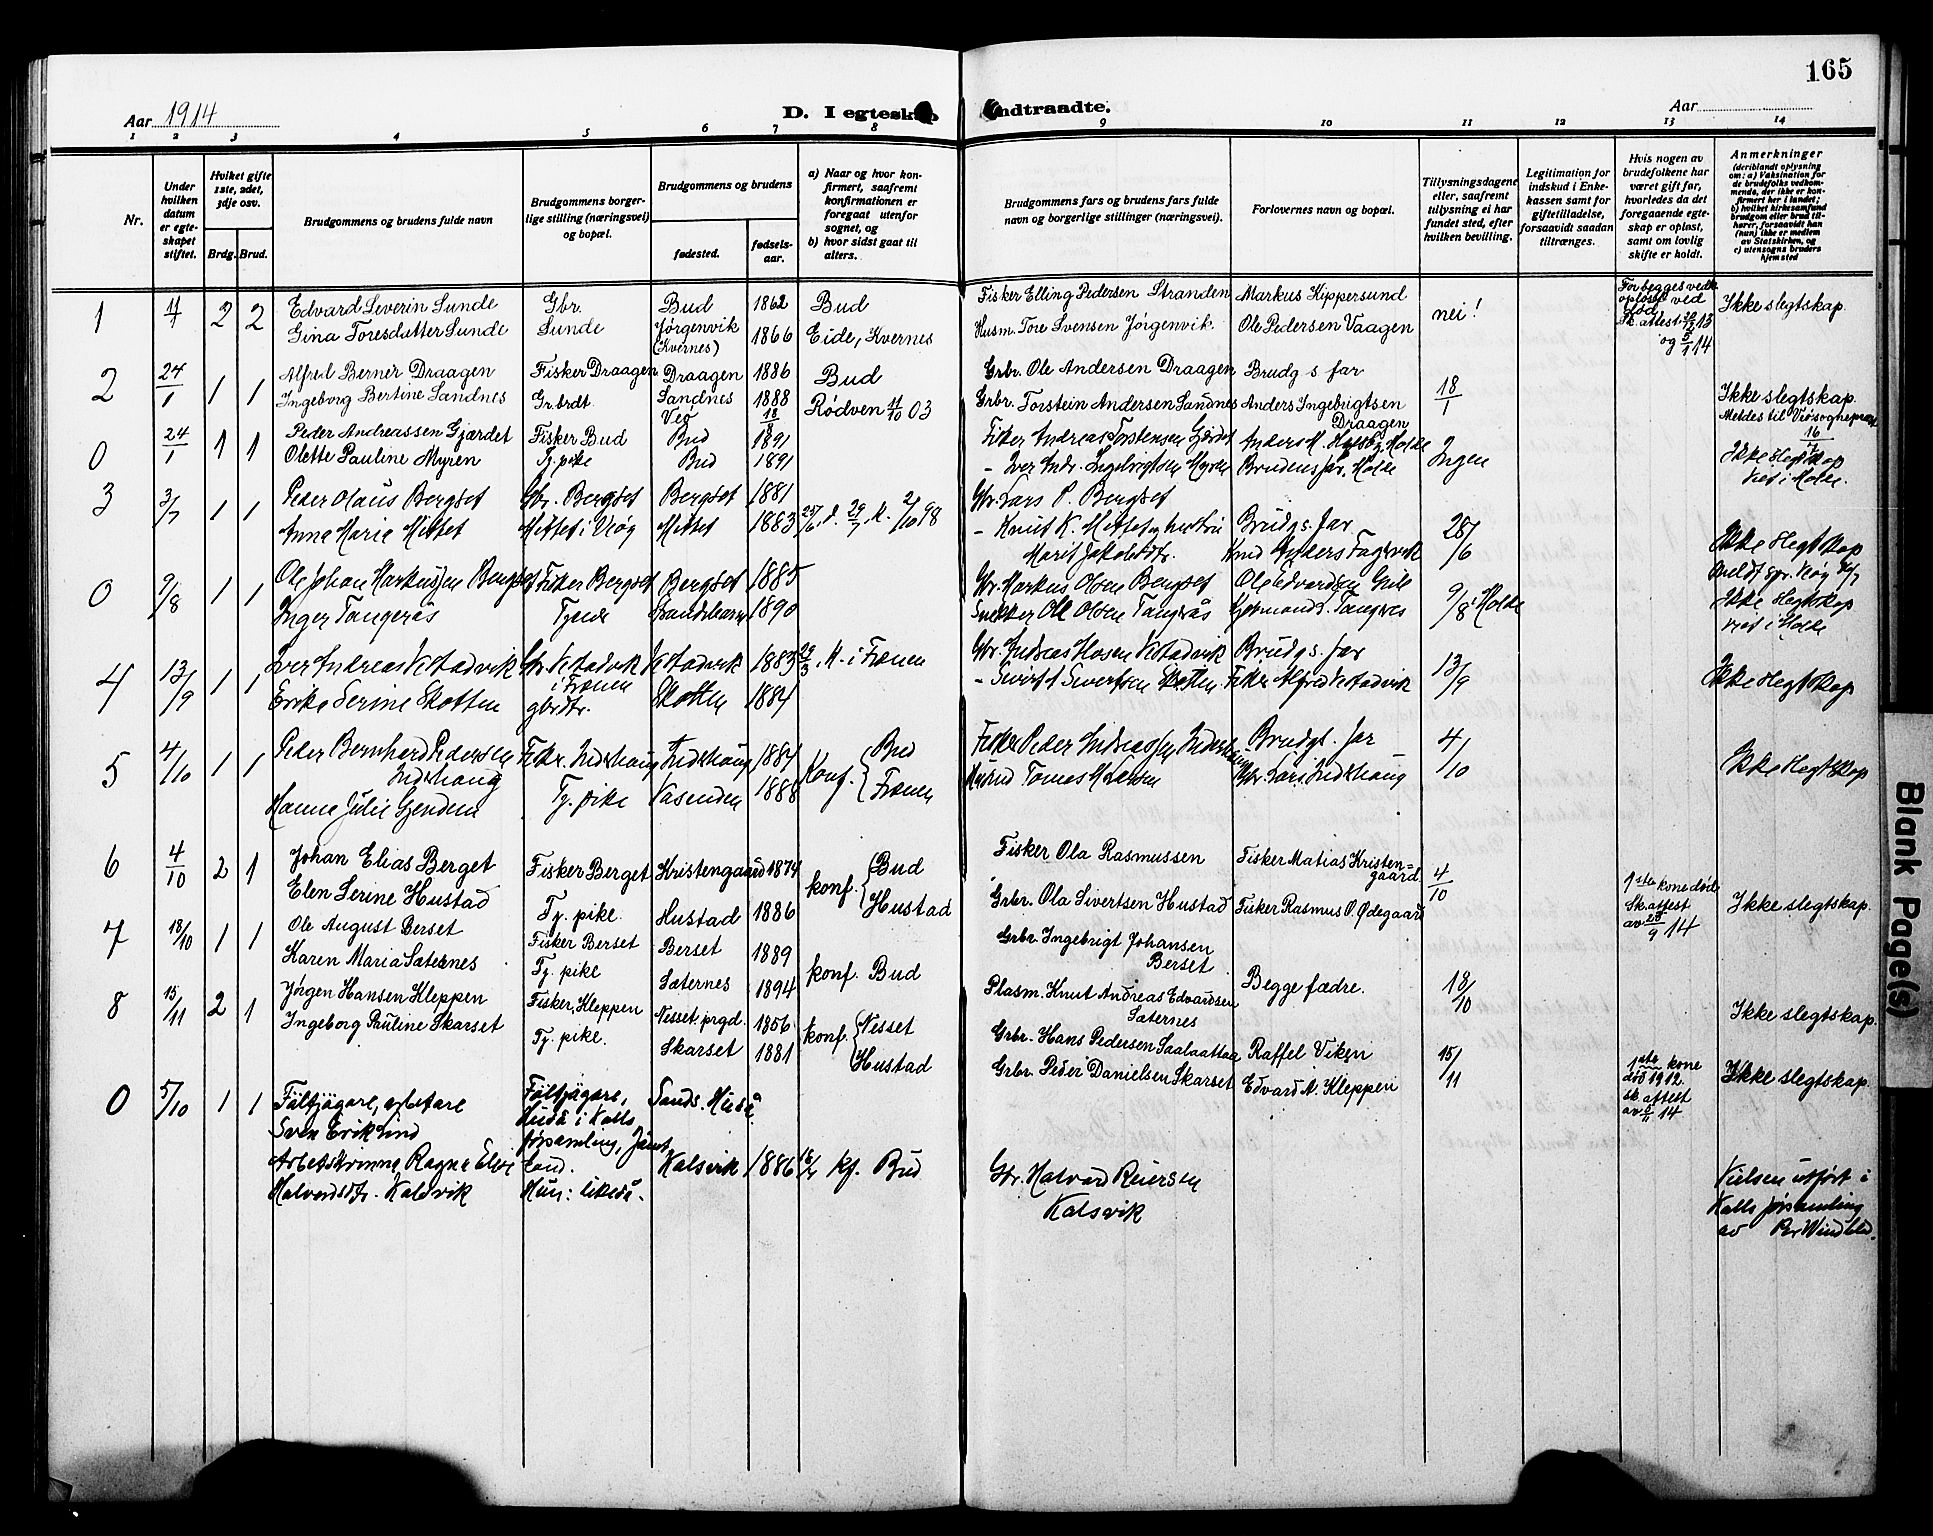 165
Aar 1914
D. I egteskab indtraadte.
Aar
1 2 3 4 5 6 7 8 9 10 11 12 13 14
Nr.
Under hvilken datum er egteskapet stiftet.
Hvilket gifte 1ste, 2det, 3dje osv.
Brdg. Brud.
Brudgommens og brudens fulde navn
Brudgommens borgerlige stilling (næringsvei) og bopæl.
Brudgommens og brudens
fødested.
fødselsaar.
a) Naar og hvor konfirmert, saafremt konfirmationen er foregaat utenfor sognet, og
b) hvor sidst gaat til alters.
Brudgommens fars og brudens fars fulde navn og borgerlige stillinger (næringsvei).
Forlovernes navn og bopæl.
Tillysningsdagene eller, saafremt tillysning ei har fundet sted, efter hvilken bevilling.
Legitimation for indskud i Enkekassen samt for giftetilladelse, forsaavidt saadan tiltrænges.
Hvis nogen av brudefolkene har været gift før, hvorledes da det foregaaende egteskap er opløst, samt om lovlig skifte er holdt.
Anmerkninger
(deriblandt oplysning om: a) Vaksination for de brudefolks vedkommende, der ikke er konfirmert her i landet;
b) hvilket kirkesamfund brudgom eller brud tilhører, forsaavidt han (hun) ikke er medlem av Statskirken, og
c) utensogns bruders hjemsted
1 11/1 2 2 Edvard Severin Sunde Gbr. Bud 1862 Bud Fisker Elling Pedersen Stranden Markus Kippersund nei! For begges vedk. opløst ved død Sk. attest 13 og 5/1 14 Ikke slegtskap.
Gina Toresdatter Sunde Sunde Jørgenvik (Kvernes) 1866 Eide, Kvernes Husm. Tore Svensen Jørgenvik. Ole Pedersen Vaagen
2 24/1 1 1 Alfred Berner Draagen Fisker Draagen Draagen 1886 Bud Grbr. Ole Andersen Draagen Brudg s far 18/1 Ikke slegtskap.
Ingeborg Bertine Sandnes Gr.brdt. Sandnes Veø 1888 Rødven 11/10 03 Grbr. Torstein Andersen Sandnes Anders Ingebrigtsen Draagen
0 24/1 1 1 Peder Andreassen Gjærdet Fisker Bud Bud 1891 Fisker Andreas Torstensen Gjærdet Ingen Ikke slegtskap
Olette Pauline Myren Tj. pike Bud 1891 Brudens far, Molde Viet i Molde.
3 3/7 1 1 Peder Olaus Bergset Gbr. Bergset Bergset 1881 Gbr. Lars P. Bergset Brudgs. far 28/6 Ikke slegtskap
Anna Marie Mittet Mittet i Veøy Mittet 1883 2/10 98 Knut K. Mittet og hustru Marit Jakobsdtr.
0 9/8 1 1 Ole Johan Markussen Bergset Fisker Bergset Bergset 1885 Gbr. Markus Olsen Bergset 9/8 i Molde Ikke slegtskap
Inger Tangerås Tjener 1890 Snekker Ole Olsen Tangerås viet i Molde
4 13/9 1 1 Iver Andreas Vestadvik Gbr. Vestadvik i Frænen Vestadvik 1883 29/3 K. i Frænen Brudgs. far 13/9 Ikke slegtskap
Erika Serine Skotten gbrdtr. Skotten 1884 Sivert Sivertsen Skotten Fisker Alfred Vestadvik
5 4/10 1 1 Peder Bernhard Pedersen Indrehaug Fisker, Indrehaug Indrehaug 1884 Konf. Bud Fisker Peder Andreassen Indrehaug Brudgs. far 4/10 Ikke slegtskap
Hanna Julie Gjendem Tj. pike Vasenden 1888 Frænen Gbr. Lars Indrehaug
6 4/10 2 1 Johan Elias Berget Fisker Berget Kristengaard 1874 konf. Bud Fisker Ola Rasmussen Fisker Matias Kristengaard 4/10 1ste kone død Sk. attest av 28/9 14 Ikke slegtskap.
Elen Serine Hustad Tj. pike Hustad 1886 Hustad Grbr. Ola Sivertsen Hustad Fisker Rasmus O. Ødegaard
7 18/10 1 1 Ole August Berset Fisker Berset Berset 1889 konf. Bud Grbr. Ingebrigt Johansen Berset Begge fædre. 18/10 Ikke slegtskap.
Karen Maria Sæternes Tj. pike Sæternes 1894 Plasm. Knut Andreas Edvardsen Sæternes
8 15/11 2 1 Jørgen Hansen Kleppen Fisker, Kleppen Nesset prgd. 1856 konf. Nesset Grbr. Hans Pedersen Raffel Viken 15/11 1ste kone død 1912. sk. attest av 14 Ikke slegtskap.
Ingeborg Pauline Skarset Tj. pike. Skarset 1881 Hustad Grbr. Peder Danielsen Skarset Edvard A. Kleppen
0 5/10 1 1 Fältjägare, arbetare Sven Erik Lind Fältjägare, Huså i Kalls församling, Jämtland.
Arbetskvinna Ragna Halvordsdtr. Kalsvik Hun: likeså. Kalsvik 1886 kf. Bud Gbr. Halvard Reiersen Kalsvik
Vielsen utført i Kalls församling av
Blank Page(s)